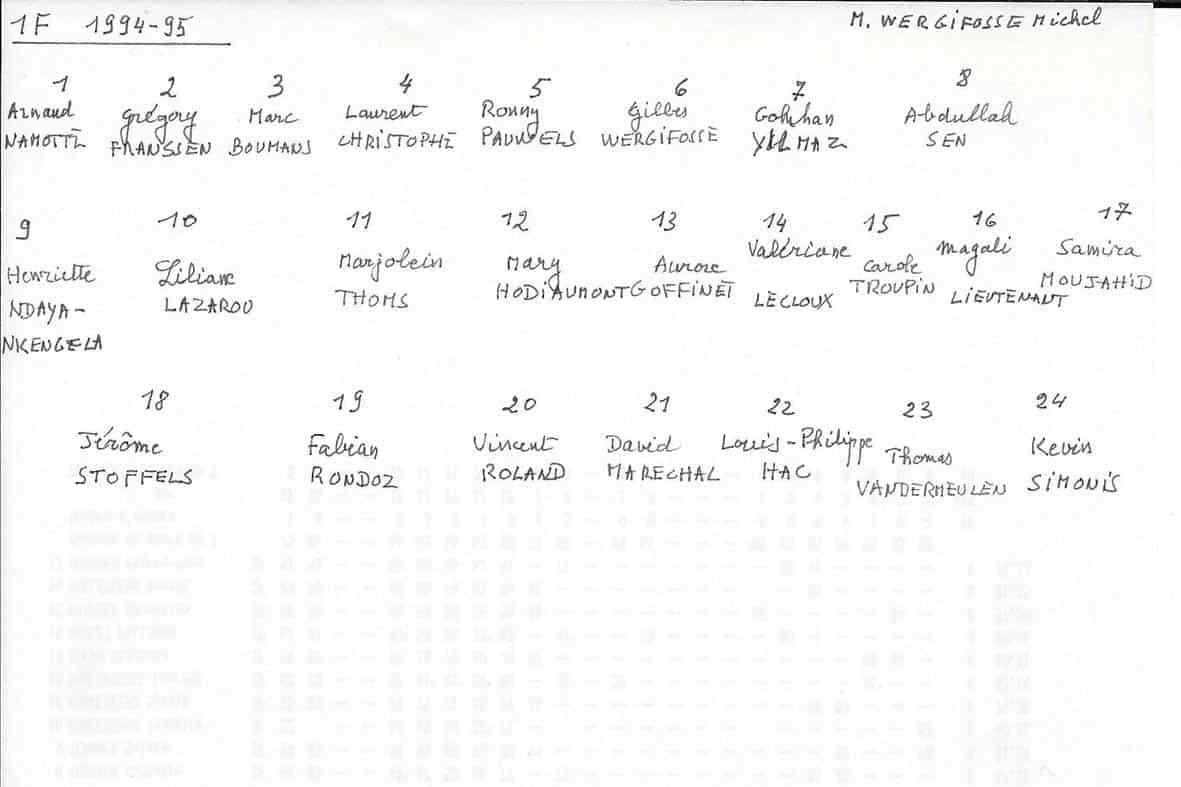 1F 1994-95
M. WERGiFOSSE Michel
1 2 3 4 5 6 7 8
Arnaud Grégory Marc Laurent Ronny Gilles Gokhan Abdullah
NAMOTTE FRANSSEN BOUMANS CHRiSTOPHE PAUWELS WERGiFOSSE YILMAZ SEN
9 10 11 12 13 14 15 16 17
Henriette Liliane Marjolein Mary Aurore Valériane Carole Magali Samira
NDAYA- LAZAROU THOMS HODiAUMONT GOFFINET LECLOUX TROUPiN LiEUTENANT MOUJAHiD
NKENGELA
18 19 20 21 22 23 24
Jérôme Fabian Vincent David Louis-Philippe Thomas Kevin
STOFFELS RONDOZ ROLAND MARECHAL HAC VANDERMEULEN SiMONiS